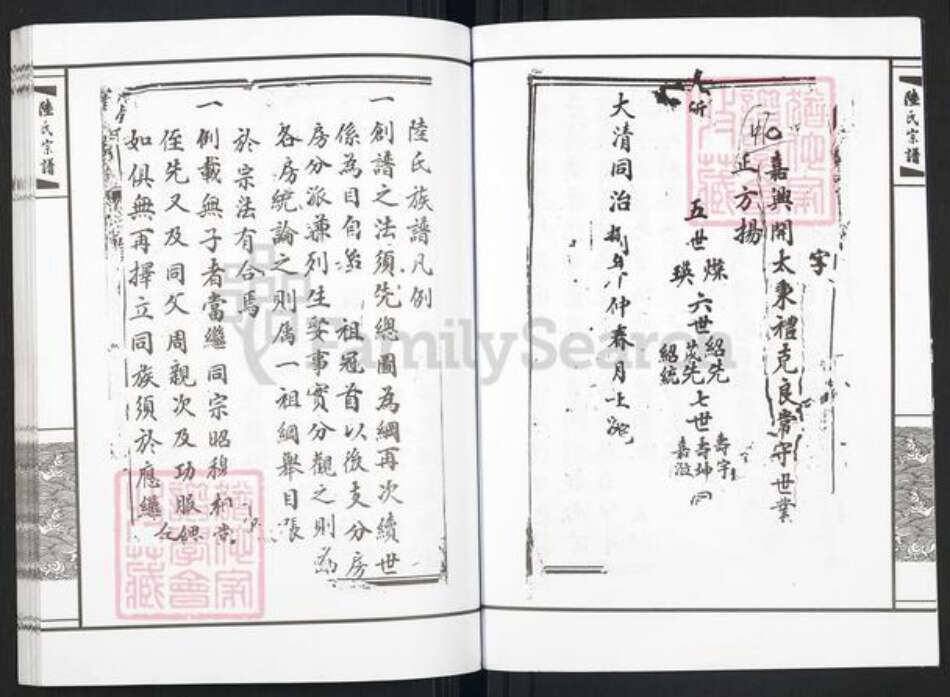 陸氏宗譜
字
嘉興開太秉禮克良常守世業
正方揚
五世 燦 瑛 六世 紹先 茂先 紹統 七世 壽宇 壽坤 嘉
大清同治捌年仲春月上
陸氏族譜凡例
一創譜之法須先總圖為綱再次續世
係為目自始祖冠首以後支分房
房分派兼列生娶事實分觀之則為
各房統論之則屬一祖綱舉目張
於宗法有合焉
一例載無子者當繼同宗昭穆相當
侄先又及同父周親次及功服緦
如俱無再擇立同族須於應繼
陸氏宗譜
FamilySearch